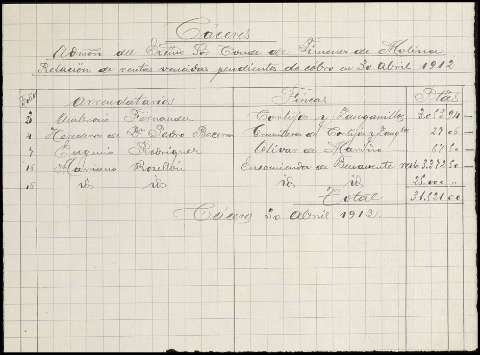 Cáceres
Admón del Exmo Sor Conde de Jimenez de Molina
Relación de rentas vencidas pendientes de cobro en 30 Abril 1912
Arrendatarios Fincas Ptas
3 Ambrosio Fernandez Cortijos y Zanganillos
4 Herederos de Dn Pedro Becerra de Cortijos y
7 Eugenio Rodriguez Olivar de
15 Mariano Encomienda de Benavente resto 3.272 50
15 id id id id 25.000 "
Total 31.521 60
Cáceres 30 Abril 1912.